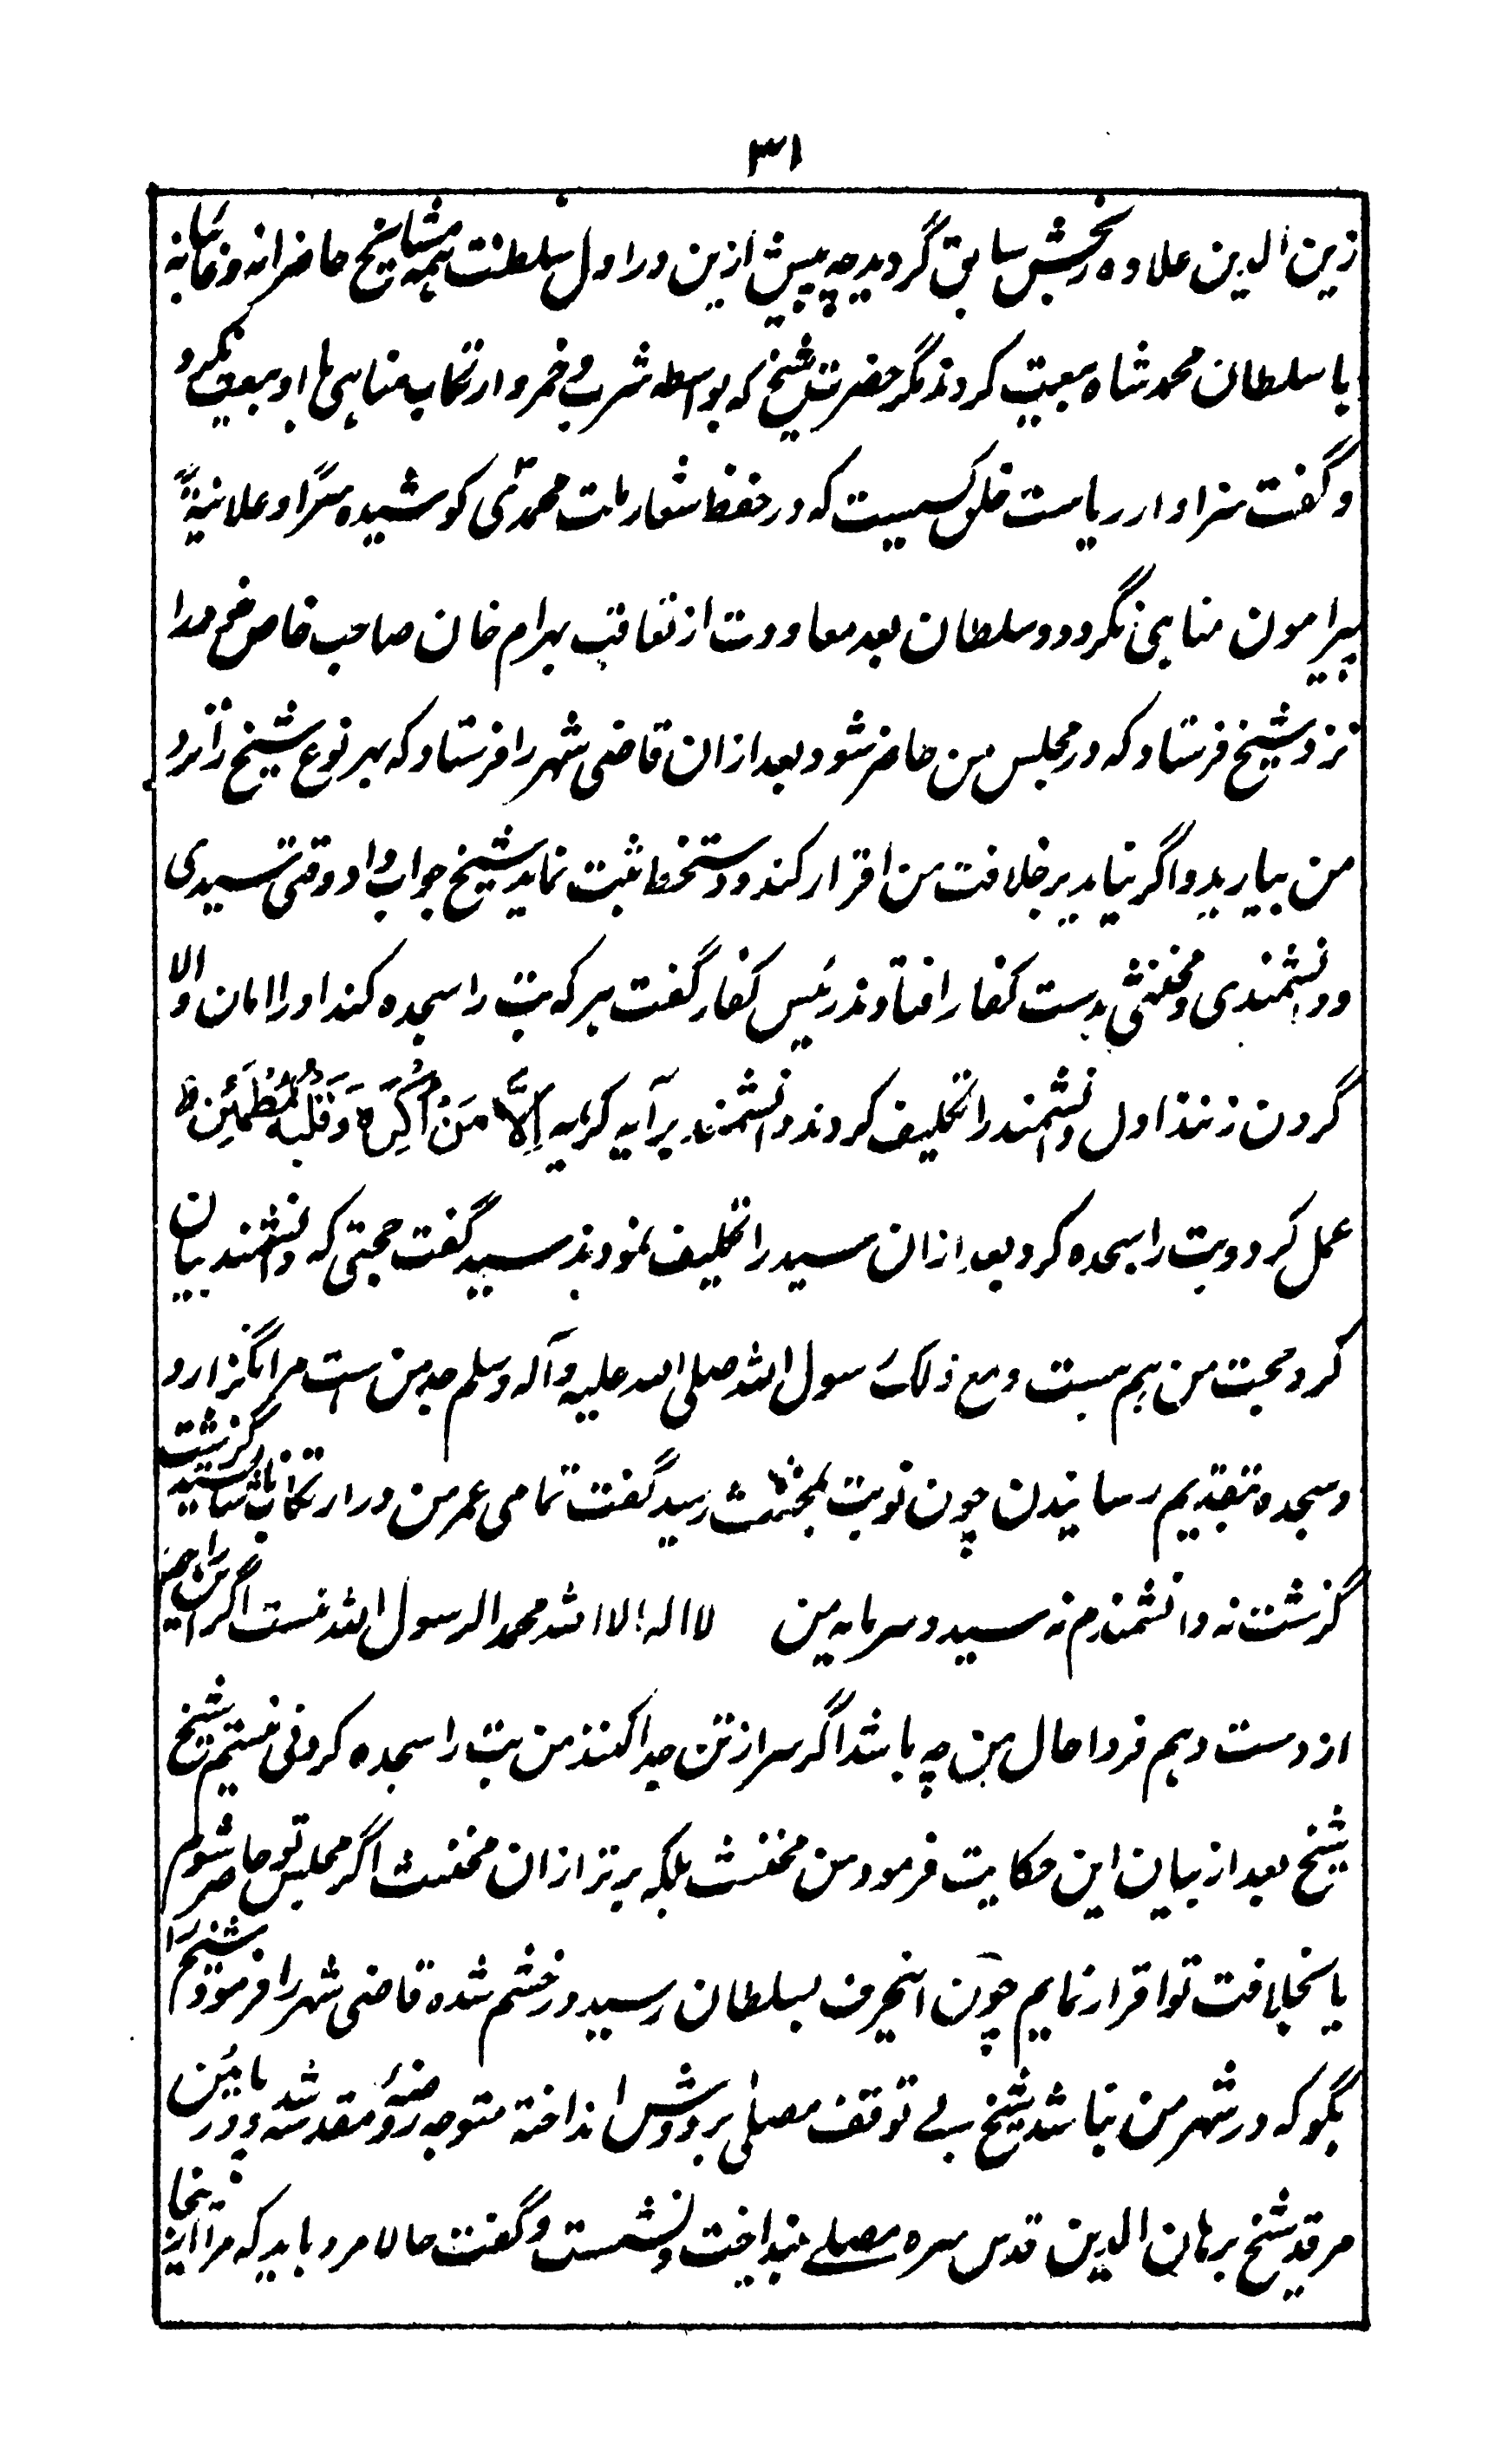 ۳۱
زین الدین علاوه رنجش سابق گردید چه پیش ازین در اول سلطنت همه مشایخ حاضرانه و غائبانه
با سلطان محمد شاه بیعت کردند مگر حضرت شیخ که بواسطه شرب خمر و ارتکاب مناهی با او بیعت نکرد
و گفت سزاوار ریاست خلق کسیست که در حفظ شعار ملت محمدی کوشیده سرًا و علانیةً
پیرامون مناهی نگردد و سلطان بعد معاودت از تعاقب بهرام خان صاحب خاص خود را
نزد شیخ فرستاد که در مجلس من حاضر شود بعد ازان قاضی شهر را فرستاد که بهر نوع شیخ را نزد
من بیارید و اگر نیاید بر خلافت من اقرار کند و دستخط ثبت نماید شیخ جواب داد وقتی سیدی
و دانشمندی و مخنثی بدست کفار افتادند رئیس کفار گفت هر که بت را سجده کند او را امان والا
گردن زنند اول دانشمند را تکلیف کردند دانشمند بر آیه کریمه اِلَّا مَنْ اُکْرِهَ وَ قَلْبُهٗ مُطْمَئِنٌّ
عمل کرد و بت را سجده کرد بعد ازان سید را تکلیف نمودند سید گفت حجتی که دانشمند بیان
کرد حجت من هم هست و مع ذلک رسول الله صلی الله علیه وآله وسلم جد من ست مرا نگزارد
و سجده بتقدیم رسانیدن چون نوبت بمخنث رسید گفت تمامی عمر من در ارتکاب ناشایسته گزشت
گزشت نه دانشمندم نه سید و سرمایه من لا اله الا الله محمد الرسول الله است اگر این را هم
از دست دهم فردا حال من چه باشد اگر سر از تن جدا کنند من بت را سجده کردنی نیستم شیخ
شیخ بعد از بیان این حکایت فرمود من مخنث بلکه برتر ازان مخنث اگر بمجلس تو حاضر شوم
یا بخلافت تو اقرار نمایم چون اینحرف بسلطان رسید در خشم شده قاضی شهر را فرمود شیخ را
بگو که در شهر من نباشد شیخ بے توقف مصلی بر دوش انداخته متوجه روضهٔ مقدسه شد و در پائین
مرقد شیخ برهان الدین قدس سره مصلے بنداخت و نشست و گفت حالا مرد باید که مرا ازینجا